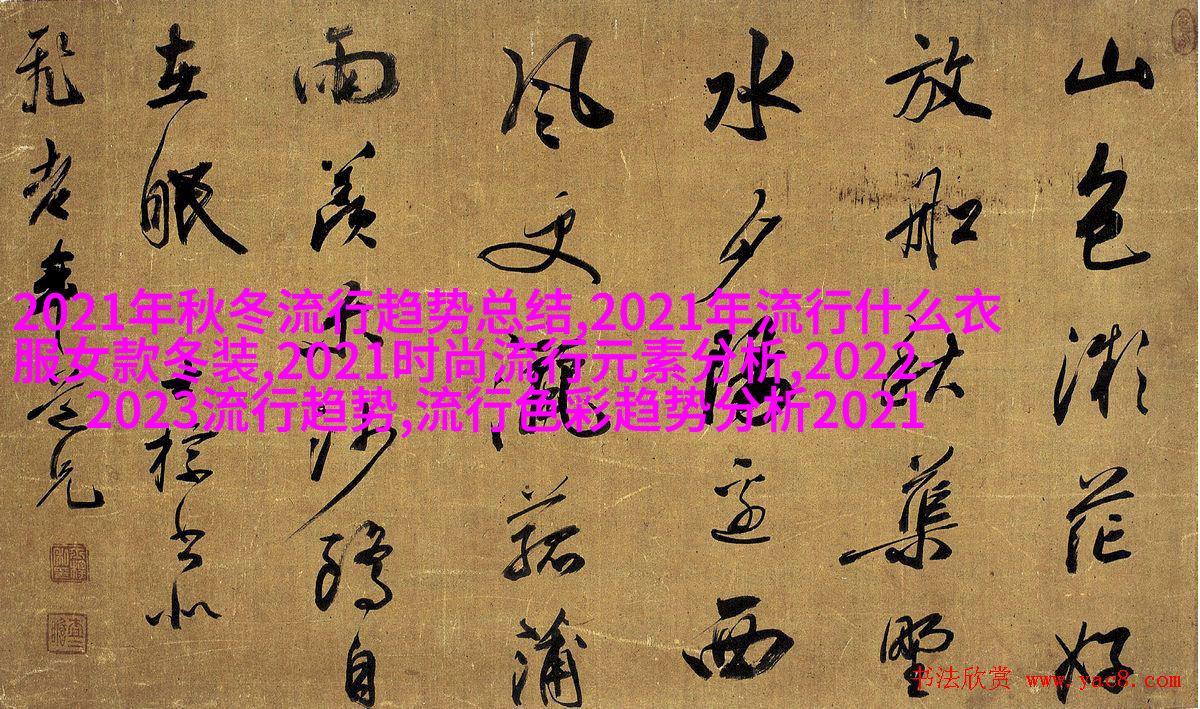 山色茫好
放船秋集野
水夕陽還西
風更亂菰蒲
雨羨沙自
在眠
2021年秋冬流行趋势总结,2021年流行什么衣
服女款冬装,2021时尚流行元素分析,2022-
2023流行趋势,流行色彩趋势分析2021
书法欣赏 www.yac8.com